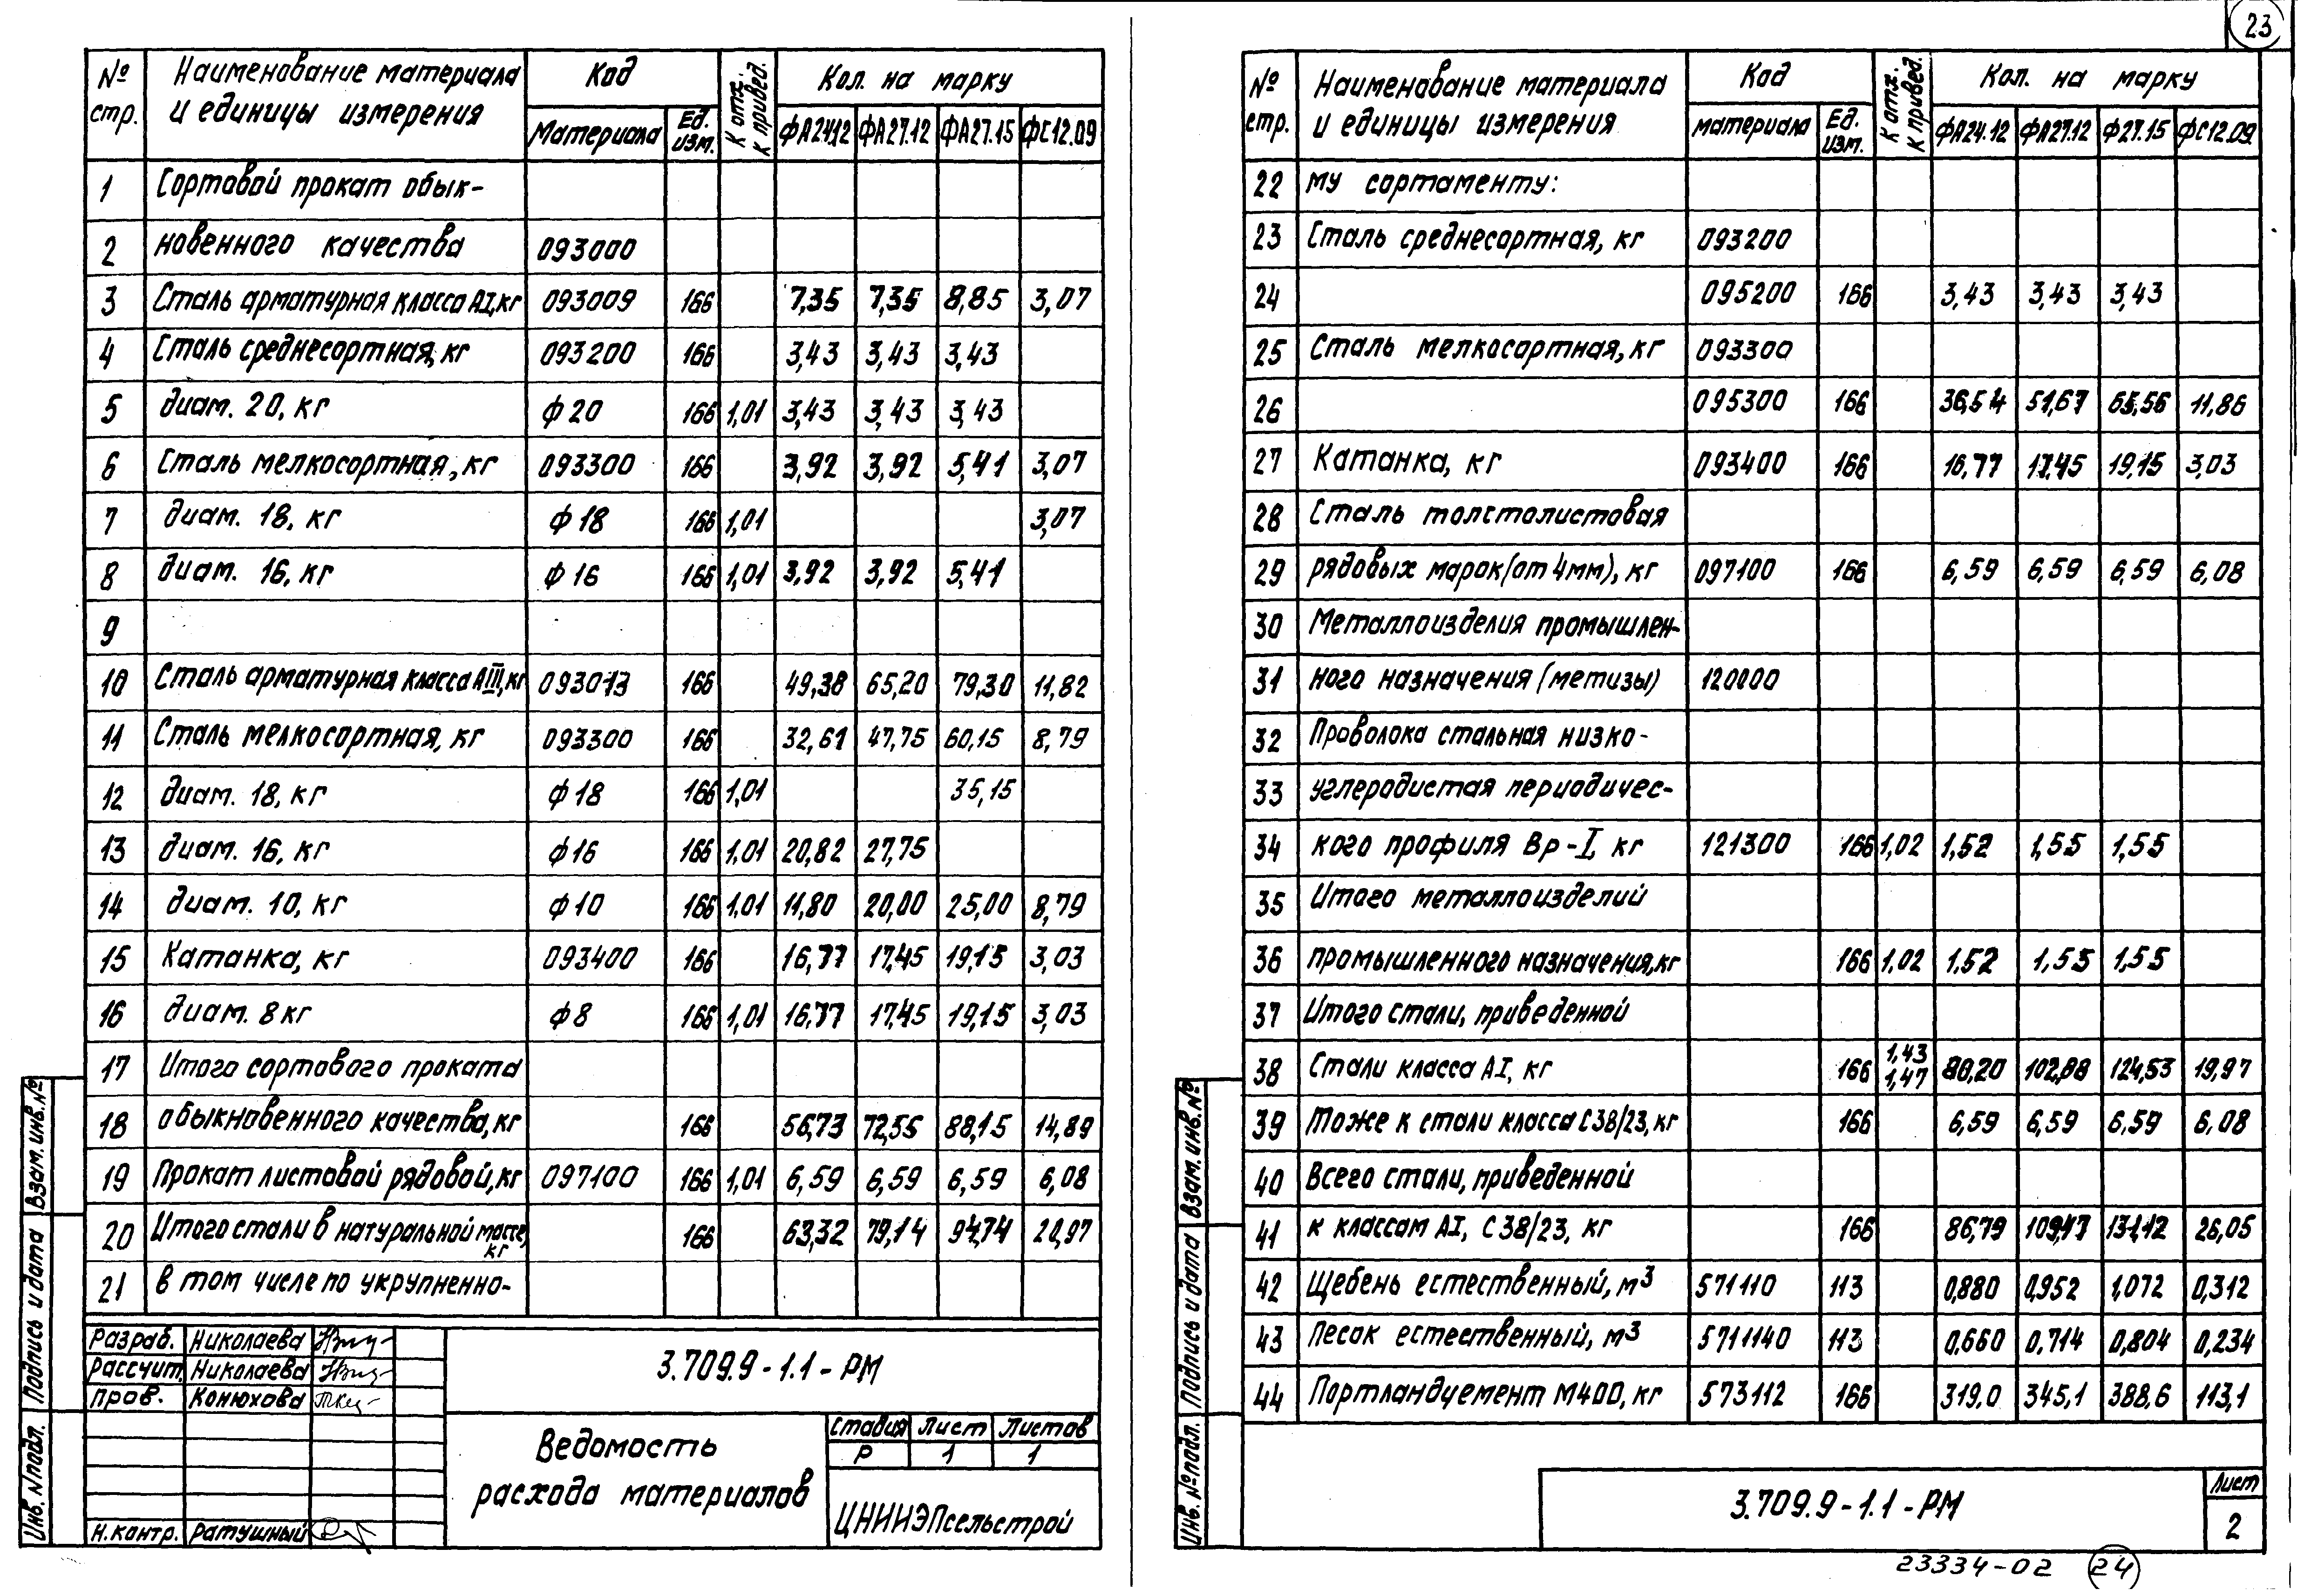 23
№ стр. Наименование материала и единицы измерения Код К отх. К привед. Кол. на марку
Материала Ед. изм. ФА24.12 ФА27.12 ФА27.15 ФС12.09
1 Сортовой прокат обык-
2 новенного качества 093000
3 Сталь арматурная класса АI, кг 093009 166 7,35 7,35 8,85 3,07
4 Сталь среднесортная, кг 093200 166 3,43 3,43 3,43
5 диам. 20, кг ф20 166 1,01 3,43 3,43 3,43
6 Сталь мелкосортная, кг 093300 166 3,92 3,92 5,41 3,07
7 диам. 18, кг ф18 166 1,01 3,07
8 диам. 16, кг ф16 166 1,01 3,92 3,92 5,41
9
10 Сталь арматурная класса АIII, кг 093013 166 49,38 65,20 79,30 11,82
11 Сталь мелкосортная, кг 093300 166 32,61 47,75 60,15 8,79
12 диам. 18, кг ф18 166 1,01 35,15
13 диам. 16, кг ф16 166 1,01 20,82 27,75
14 диам. 10, кг ф10 166 1,01 11,80 20,00 25,00 8,79
15 Катанка, кг 093400 166 16,77 17,45 19,15 3,03
16 диам. 8 кг ф8 166 1,01 16,77 17,45 19,15 3,03
17 Итого сортового проката
18 обыкновенного качества, кг 166 56,73 72,55 88,15 14,89
19 Прокат листовой рядовой, кг 097100 166 1,01 6,59 6,59 6,59 6,08
20 Итого стали в натуральной массе, кг 166 63,32 79,14 94,74 20,97
21 в том числе по укрупненно-
Разраб. Николаева
Рассчит. Николаева
Пров. Конюхова
Н.контр. Ратушный
3.709.9-1.1-РМ
Ведомость
расхода материалов
Стадия Лист Листов
Р 1 1
ЦНИИЭПсельстрой
Инв. № подл. Подпись и дата Взам. инв. №
№ стр. Наименование материала и единицы измерения Код К отх. К привед. Кол. на марку
материала Ед. изм. ФА24.12 ФА27.12 Ф27.15 ФС12.09
22 му сортаменту:
23 Сталь среднесортная, кг 093200
24 095200 166 3,43 3,43 3,43
25 Сталь мелкосортная, кг 093300
26 095300 166 36,54 51,67 65,56 11,86
27 Катанка, кг 093400 166 16,77 17,45 19,15 3,03
28 Сталь толстолистовая
29 рядовых марок (от 4мм), кг 097100 166 6,59 6,59 6,59 6,08
30 Металлоизделия промышлен-
31 ного назначения (метизы) 120000
32 Проволока стальная низко-
33 углеродистая периодичес-
34 кого профиля Вр-I, кг 121300 166 1,02 1,52 1,55 1,55
35 Итого металлоизделий
36 промышленного назначения, кг 166 1,02 1,52 1,55 1,55
37 Итого стали, приведенной
38 Стали класса АI, кг 166 1,43 1,47 80,20 102,88 124,53 19,97
39 Тоже к стали класса С38/23, кг 166 6,59 6,59 6,59 6,08
40 Всего стали, приведенной
41 к классам АI, С38/23, кг 166 86,79 109,47 131,12 26,05
42 Щебень естественный, м3 571110 113 0,880 0,952 1,072 0,312
43 Песок естественный, м3 5711140 113 0,660 0,714 0,804 0,234
44 Портландцемент М400, кг 573112 166 319,0 345,1 388,6 113,1
3.709.9-1.1-РМ
Лист
2
Инв. № подл. Подпись и дата Взам. инв. №
23334-02 24